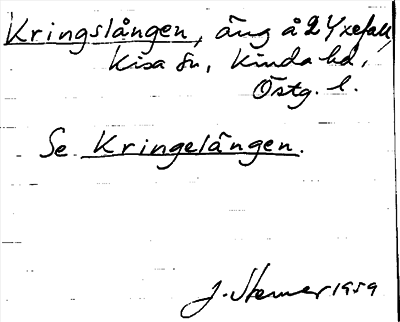 Kringslången, äng å 2 Yxefall,
Kisa sn, Kinda hd,
Östg. l.
Se Kringelängen.
J. Sterner 1959